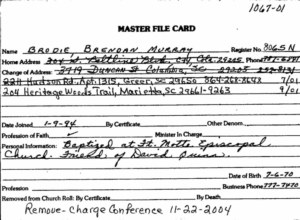 1067-01
MASTER FILE CARD
Name BRODIE, BRENDAN MURRAY Register No. 8065 N
Home Address Beltline Blvd. 29205 Phone
Charge of Address: 3719 DUNCAN St Columbia, SC 29205
2211 Hudson Rd. Apt. 1315, Greer, SC 29650 864-268- 7/01
204 Heritage Woods Trail, Marietta, SC 29661-9263 9/01
Date Joined 1-9-94 By Certificate Other Denom.
Profession of Faith ✓ Minister in Charge
Personal Information: Baptized at Ft. Motte Episcopal
Church. Friend of David
Date of Birth 7-6-70
Profession Business Phone 777-5070
Removed from Church Roll: By Certificate By Death
Remove-Charge Conference 11-22-2004